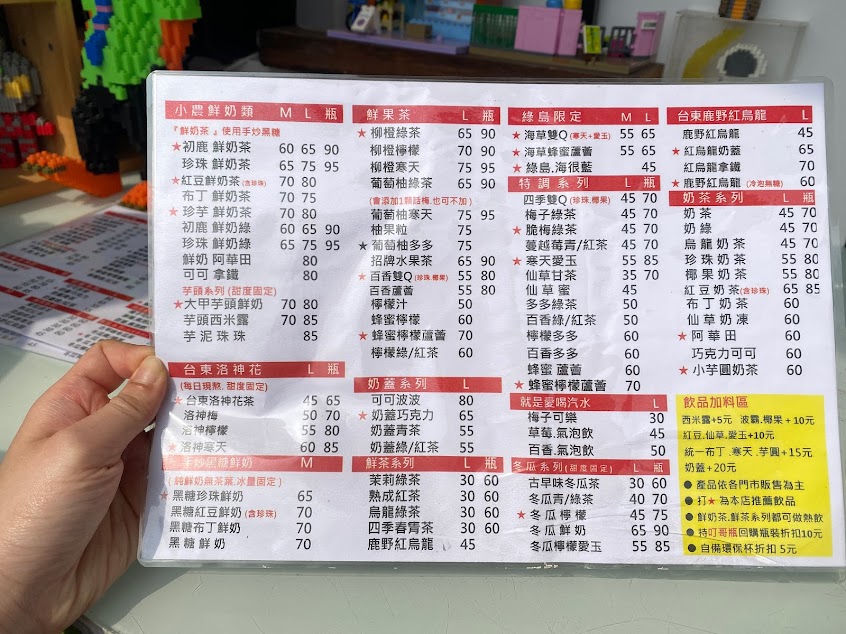 小農鮮奶類 M L 瓶
『鮮奶茶 』使用手炒黑糖
★初鹿 鮮奶茶 60 65 90
珍珠 鮮奶茶 65 75 95
★紅豆鮮奶茶(含珍珠) 70 80
布丁 鮮奶茶 70 75
★珍芋 鮮奶茶 70 80
初鹿 鮮奶綠 60 65 90
珍珠 鮮奶綠 65 75 95
鮮奶 阿華田 80
可可 拿鐵 80
芋頭系列 (甜度固定)
★大甲芋頭鮮奶 70 80
芋頭西米露 70 85
芋泥 珠珠 85
台東洛神花 L 瓶
(每日現熬. 甜度固定)
★台東洛神花茶 45 65
洛神梅 50 70
洛神檸檬 55 80
★洛神寒天 60 85
手炒黑糖鮮奶 M
(純鮮奶無茶葉.冰量固定)
★黑糖珍珠鮮奶 65
黑糖紅豆鮮奶 (含珍珠) 70
黑糖布丁鮮奶 70
黑糖 鮮奶 70
鮮果茶 L 瓶
★柳橙綠茶 65 90
柳橙檸檬 70 90
柳橙寒天 75 95
葡萄柚綠茶 65 90
(會添加1顆話梅.也可不加 )
葡萄柚寒天 75 95
柚果粒 75
★葡萄柚多多 75
招牌水果茶 65 90
★百香雙Q (珍珠.椰果) 55 80
百香蘆薈 55 80
檸檬汁 50
蜂蜜檸檬 60
★蜂蜜檸檬蘆薈 70
檸檬綠/紅茶 60
奶蓋系列 L
可可波波 80
★奶蓋巧克力 65
奶蓋青茶 55
奶蓋綠/紅茶 55
鮮茶系列 L 瓶
茉莉綠茶 30 60
熟成紅茶 30 60
烏龍綠茶 30 60
四季春菁茶 30 60
鹿野紅烏龍 45
綠島限定 M L
★海草雙Q (寒天+愛玉) 55 65
★海草蜂蜜蘆薈 55 65
★綠島.海很藍 45
特調系列 L 瓶
四季雙Q (珍珠.椰果) 45 70
梅子綠茶 45 70
★脆梅綠茶 45 70
蔓越莓青/紅茶 45 70
★寒天愛玉 55 85
仙草甘茶 35 70
仙草蜜 45
多多綠茶 50
百香綠/紅茶 50
檸檬多多 60
百香多多 60
蜂蜜 蘆薈 60
★蜂蜜檸檬蘆薈 70
就是愛喝汽水 L
梅子可樂 30
草莓.氣泡飲 45
百香.氣泡飲 50
冬瓜系列 (甜度固定) L 瓶
古早味冬瓜茶 30 60
冬瓜青/綠茶 40 70
★冬瓜 檸檬 45 75
冬瓜 鮮奶 65 90
冬瓜檸檬愛玉 55 85
台東鹿野紅烏龍 L
鹿野紅烏龍 45
★紅烏龍奶蓋 65
紅烏龍拿鐵 70
★鹿野紅烏龍 (冷泡無糖) 60
奶茶系列 L 瓶
奶 茶 45 70
奶 綠 45 70
烏龍奶茶 45 70
珍珠奶茶 55 80
椰果奶茶 55 80
紅豆奶茶(含珍珠) 65 85
布丁奶茶 60
仙草奶凍 60
★阿華田 60
巧克力可可 60
★小芋圓奶茶 60
飲品加料區
西米露+5元 波霸.椰果+10元
紅豆.仙草.愛玉+10元
統一布丁.寒天.芋圓+15元
奶蓋+20元
● 產品依各門市販售為主
● 打★ 為本店推薦飲品
● 鮮奶茶.鮮茶系列都可做熱飲
● 持叮哥瓶回購瓶裝折扣10元
● 自備環保杯折扣 5元